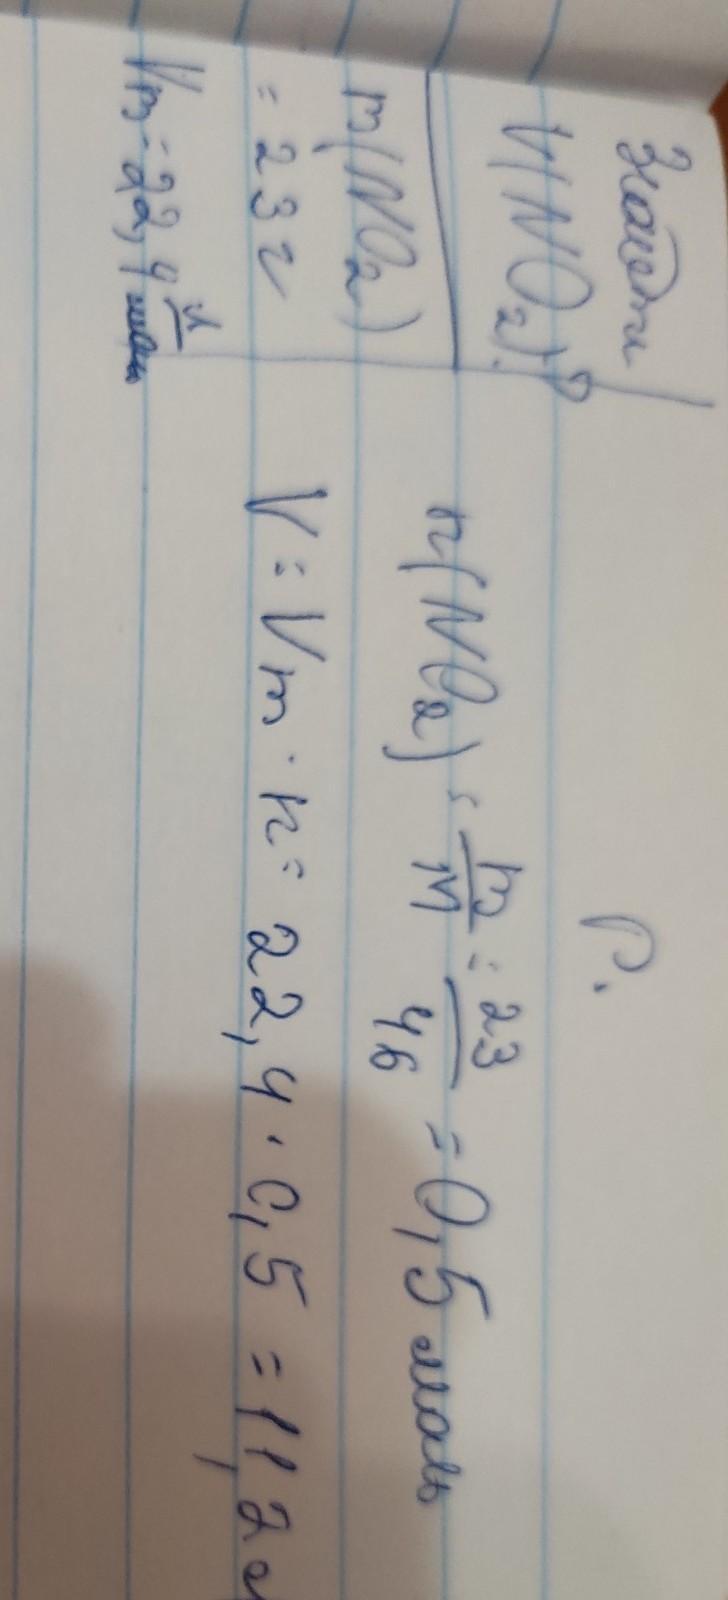 Знайти
V(NO₂)?
m(NO₂)
= 23 г
Vm = 22,4 л/моль
Р.
n(NO₂) = m/M = 23/46 = 0,5 моль
V = Vm · n = 22,4 · 0,5 = 11,2 л